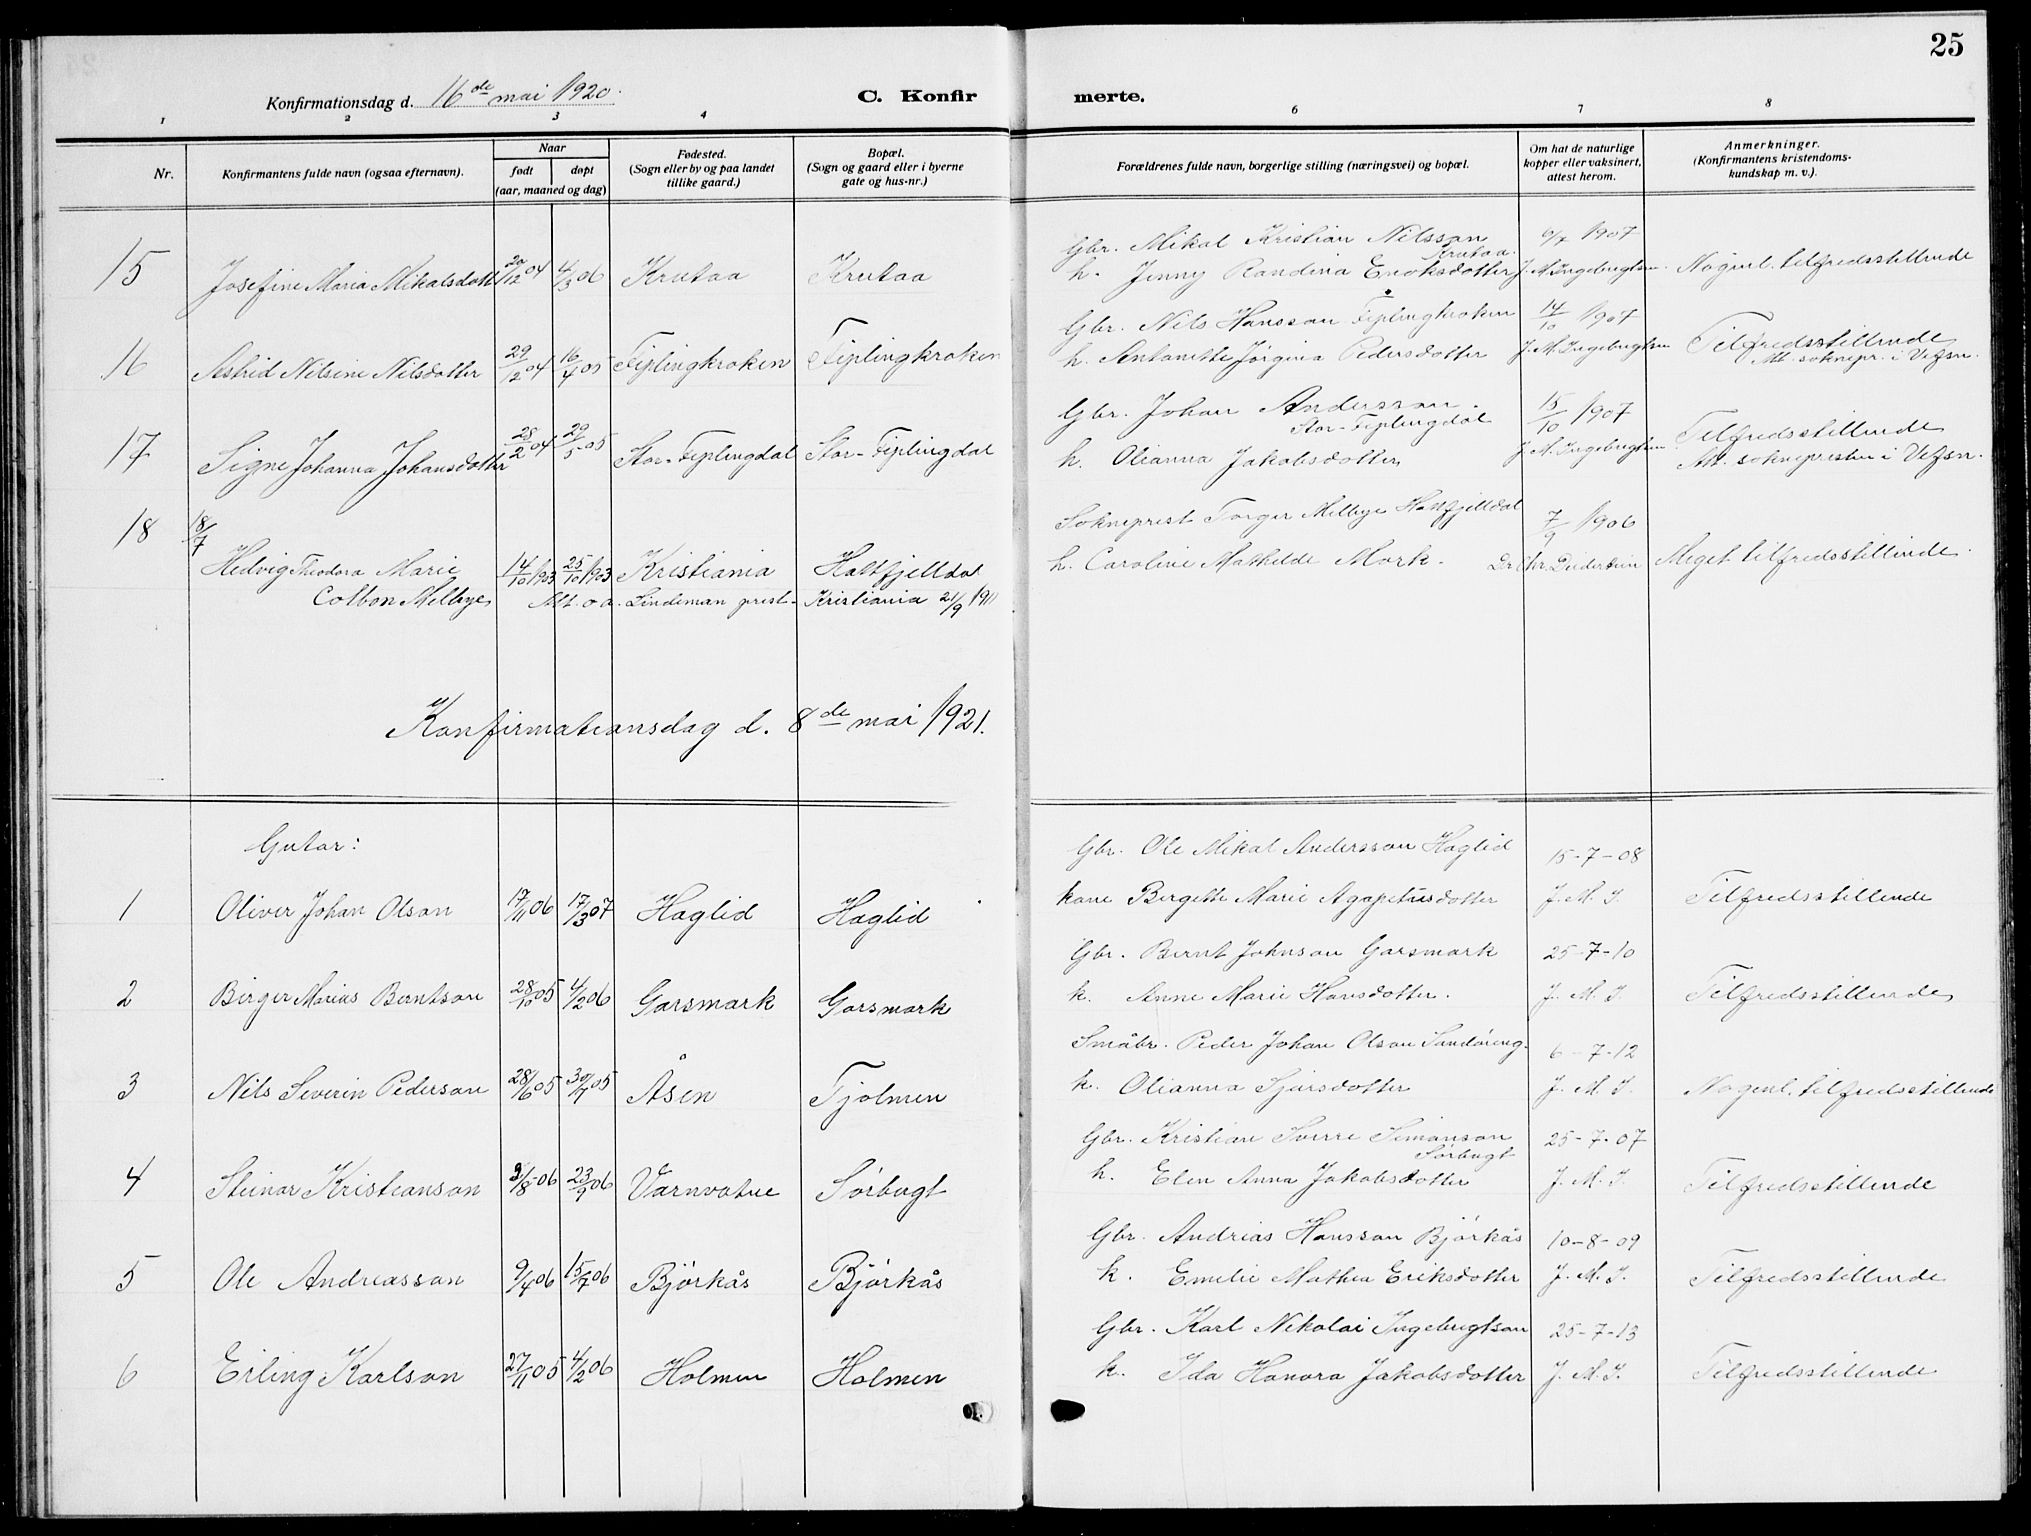 25
Konfirmationsdag d. 16de mai 1920.
C. Konfirmerte.
1 2 3 4 6 7 8
Nr.
Konfirmantens fulde navn (ogsaa efternavn).
Naar
født døpt
(aar, maaned og dag)
Fødested.
(Sogn eller by og paa landet
tillike gaard.)
Bopæl.
(Sogn og gaard eller i byerne
gate og hus-nr.)
Forældrenes fulde navn, borgerlige stilling (næringsvei) og bopæl.
Om hat de naturlige
kopper eller vaksinert,
attest herom.
Anmerkninger.
(Konfirmantens kristendoms-
kundskap m. v.).
Gbr. Mikal Kristian Nilsson 1907
Krutaa.
15 Josefine Maria Mikalsdott 20/12 04 4/3 06 Krutaa Krutaa h. Jenny Randina Enoksdotter J. M. Ingebrigtsen. Nogenl. tilfredsstillende
Gbr. Nils Hansson Fiplingkroken 14/10 1907
16 Astrid Nilsine Nilsdotter 29/12 04 16/4 05 Fiplingkroken Fiplingkroken h. Antonette Jørgina Pedersdotter J. M. Ingebrigtsen Tilfredsstillende
Att. soknepr. i Vefsn.
Gbr. Johan Andersson. 15/10 1907
Stor-Fiplingdal
17 Signe Johanna Johansdotter 28/2 04 29/5 05 Stor-Fiplingdal Stor-Fiplingdal h. Olianna Jakobsdotter J. M. Ingebrigtsen Tilfredsstillende
Att. soknepresten i Vefsn.
18 18/7 Sokneprest Torger Melbye Hattfjelldal 7/9 1906
Hedvig Theodora Marie 14/10 1903 25/10 1903 Kristiania Hattfjelldal h. Caroline Mathilde Mork. Dr. Chr. Meget tilfredsstillende.
Colbon Melbye Alt. o. a. Lindeman prest- Kristiania 21/9 1911
Konfirmationsdag d. 8de mai 1921.
Gutar:
Gbr. Ole Mikal Andersson Haglid 15-7-08
1 Oliver Johan Olson 17/11 06 17/3 07 Haglid Haglid kone Bergette Marie Agapetusdotter J. M. I. Tilfredsstillende
Gbr. Bernt Johnson Garsmark 25-7-10
2 Birger Marius Berntson 28/10 05 4/2 06 Garsmark Garsmark k. Anne Marie Hansdotter. J. M. I. Tilfredsstillende
Småbr. Peder Johan Olson Sandøreng. 6-7-12
3 Nils Severin Pederson 28/6 05 30/7 05 Åsen Tjolmen k. Olianna Sjursdotter J. M. I. Nogenl. tilfredsstillende
Gbr. Kristian Sverre Simonson 25-7-07
Sørbugt
4 Steinar Kristianson /8 06 23/9 06 Varnvatne Sørbugt h. Elen Anna Jakobsdotter J. M. I. Tilfredsstillende
Gbr. Andrias Hansson Bjørkås 10-8-09
5 Ole Andreasson 9/4 06 15/7 06 Bjørkås Bjørkås k. Emelie Mathea Eriksdotter J. M. I. Tilfredsstillende
Gbr. Karl Nikolai Ingebrigtson 25-7-13
6 Erling Karlson 27/11 05 4/2 06 Holmen Holmen k. Ida Hanora Jakobsdotter J. M. I. Tilfredsstillende